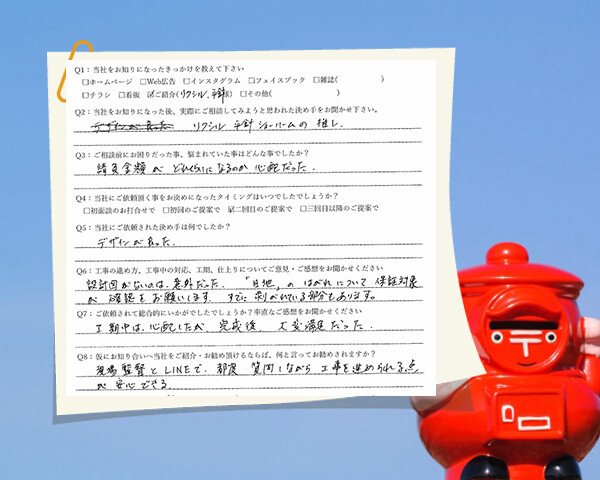 Q1：当社をお知りになったきっかけを教えて下さい
□ホームページ □Web広告 □インスタグラム □フェイスブック □雑誌( )
□チラシ □看板 ☑ご紹介(リクシル 平針SR) □その他( )
Q2：当社をお知りになった後、実際にご相談してみようと思われた決め手をお聞かせ下さい。
デザインが良った リクシル 平針ショールームの推し.
Q3：ご相談前にお困りだった事、悩まれていた事はどんな事でしたか？
請負金額が どれくらいになるのか 心配だった.
Q4：当社にご依頼頂く事をお決めになったタイミングはいつでしたでしょうか？
□初面談のお打合せで □初回のご提案で ☑二回目のご提案で □三回目以降のご提案で
Q5：当社にご依頼された決め手は何でしたか？
デザインが良った.
Q6：工事の進め方、工事中の対応、工期、仕上りについてご意見・ご感想をお聞かせください
設計図がないのは、意外だった. 「目地」の はがれについて 保証対象
か 確認を お願いします. すでに 剥がれている部分もあります。
Q7：ご依頼されて総合的にいかがでしたでしょうか？率直なご感想をお聞かせください
工期中は、心配したが 完成後 大変満足だった.
Q8：仮にお知り合いへ当社をご紹介・お勧め頂けるならば、何と言ってお勧めされますか？
現場監督とLINEで、都度 質問しながら 工事を進められる点
が 安心できる.